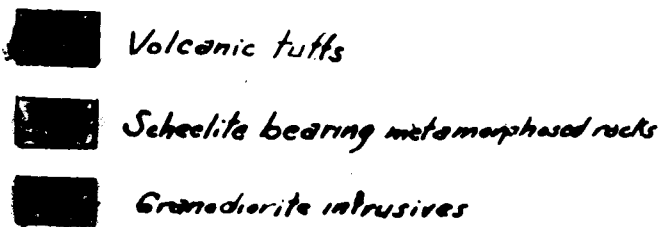 Volcanic tuffs
Scheelite bearing metamorphosed rocks
Granodiorite intrusives